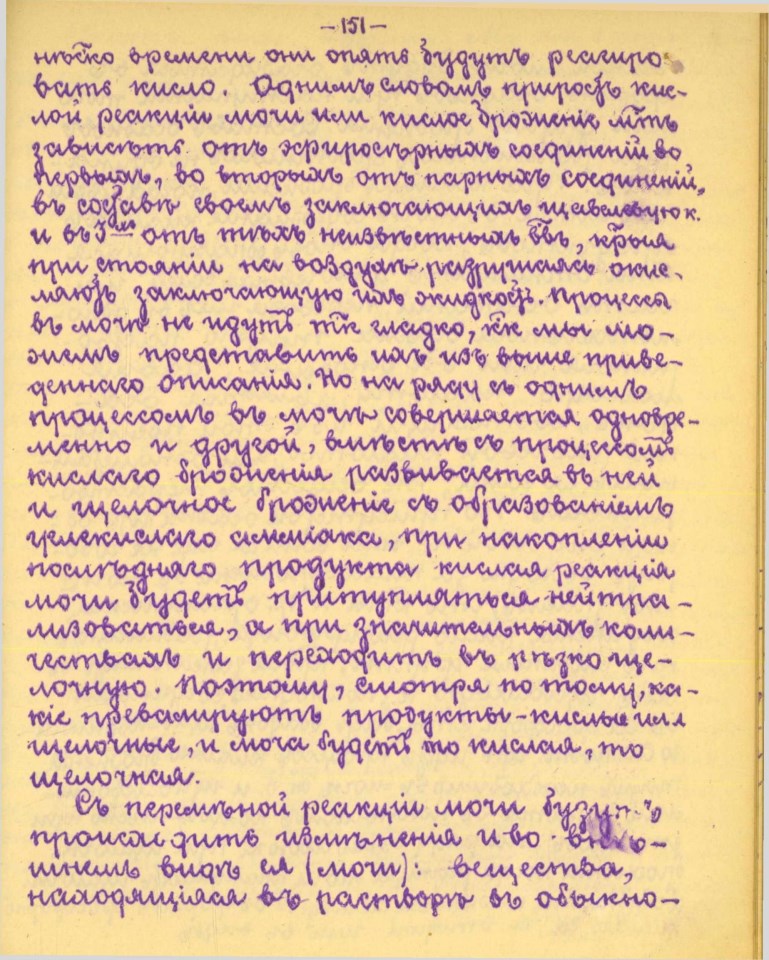 -151-
нѣско времени они опять будутъ реагиро-
вать кисло. Однимъ словомъ прирость кис-
лой реакціи мочи или кислое броженіе м.тъ
зависѣть отъ эфиросѣрныхъ соединеній во
первыхъ, во вторыхъ отъ парныхъ соединеній,
въ составѣ своемъ заключающихъ щавелевую к.
и въ 3хъ отъ тѣхъ неизвѣстныхъ в-въ, к-рыя
при стояніи на воздухѣ разрушаясь окис-
ляютъ заключающую ихъ жидкость. Процессы
въ мочѣ не идутъ тк гладко, кк мы мо-
жемъ представить ихъ изъ выше приве-
деннаго описанія. Но на ряду съ однимъ
процессомъ въ мочѣ совершается одновре-
менно и другой, вмѣстѣ съ процессомъ
кислаго броженія развивается въ ней
и щелочное броженіе съ образованіемъ
углекислаго амміака, при накопленіи
послѣдняго продукта кислая реакція
мочи будетъ притупляться нейтра-
лизоваться, а при значительныхъ коли-
чествахъ и переходить въ рѣзко ще-
лочную. Поэтому, смотря по тому, ка-
кіе превалируютъ продукты-кислые или
щелочные, и моча будетъ то кислая, то
щелочная.
Съ перемѣной реакціи мочи будутъ
происходить измѣненія и во внѣ-
шнемъ видѣ ея (мочи): вещества,
находящіяся въ растворѣ въ обыкно-